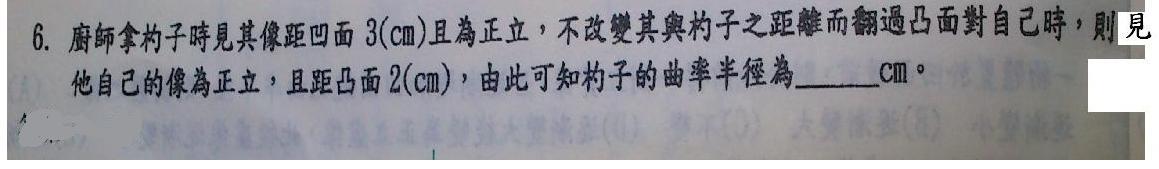 6. 廚師拿杓子時見其像距凹面 3(cm)且為正立，不改變其與杓子之距離而翻過凸面對自己時，則見
他自己的像為正立，且距凸面 2(cm)，由此可知杓子的曲率半徑為______cm。